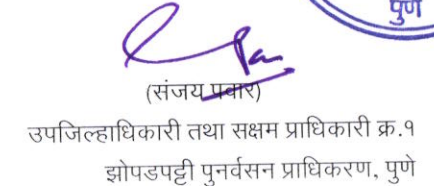 पुणे
(संजय पवार)
उपजिल्हाधिकारी तथा सक्षम प्राधिकारी क्र.१
झोपडपट्टी पुनर्वसन प्राधिकरण, पुणे